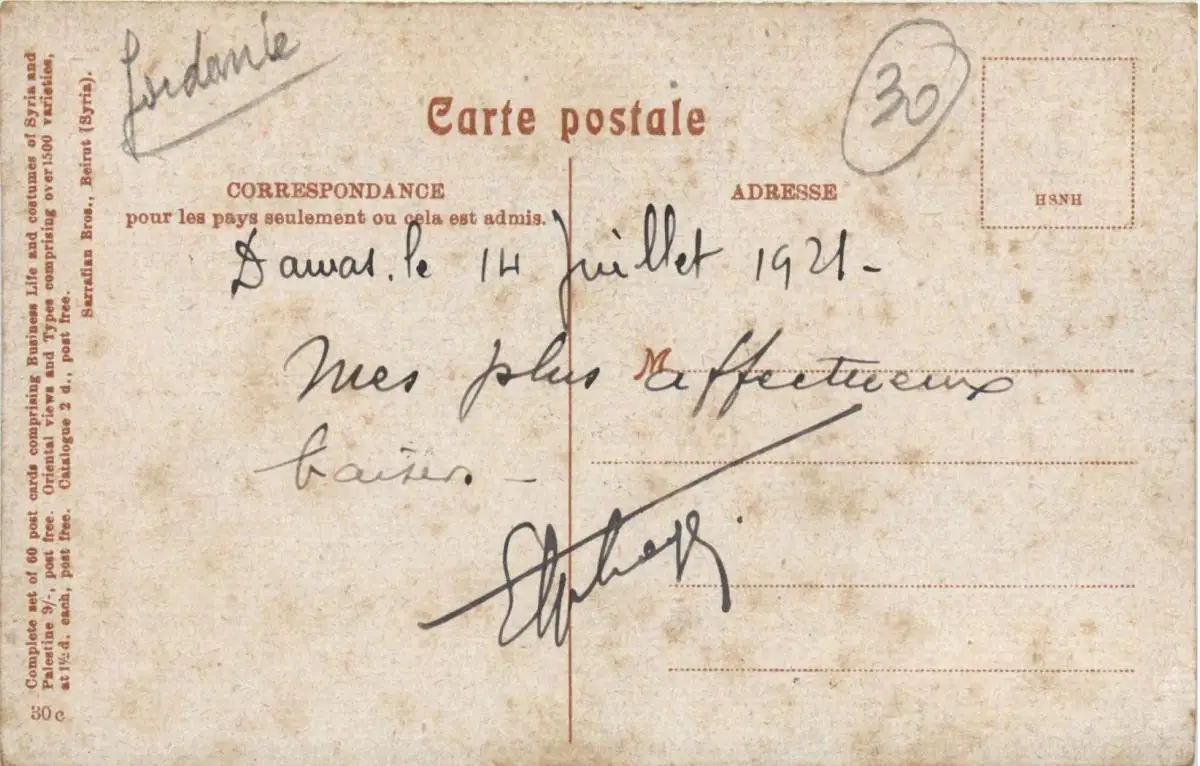 Jordanie
30
Carte postale
CORRESPONDANCE
pour les pays seulement ou cela est admis.
ADRESSE
HSNH
Damas. le 14 Juillet 1921 -
Mes plus affectueux
baisers. -
M
Complete set of 60 post cards comprising Business Life and costumes of Syria and
Palestine 9/-, post free. Oriental views and Types comprising over 1500 varieties,
at 1½ d. each, post free. Catalogue 2 d., post free.
Sarrafian Bros., Beirut (Syria).
30 c